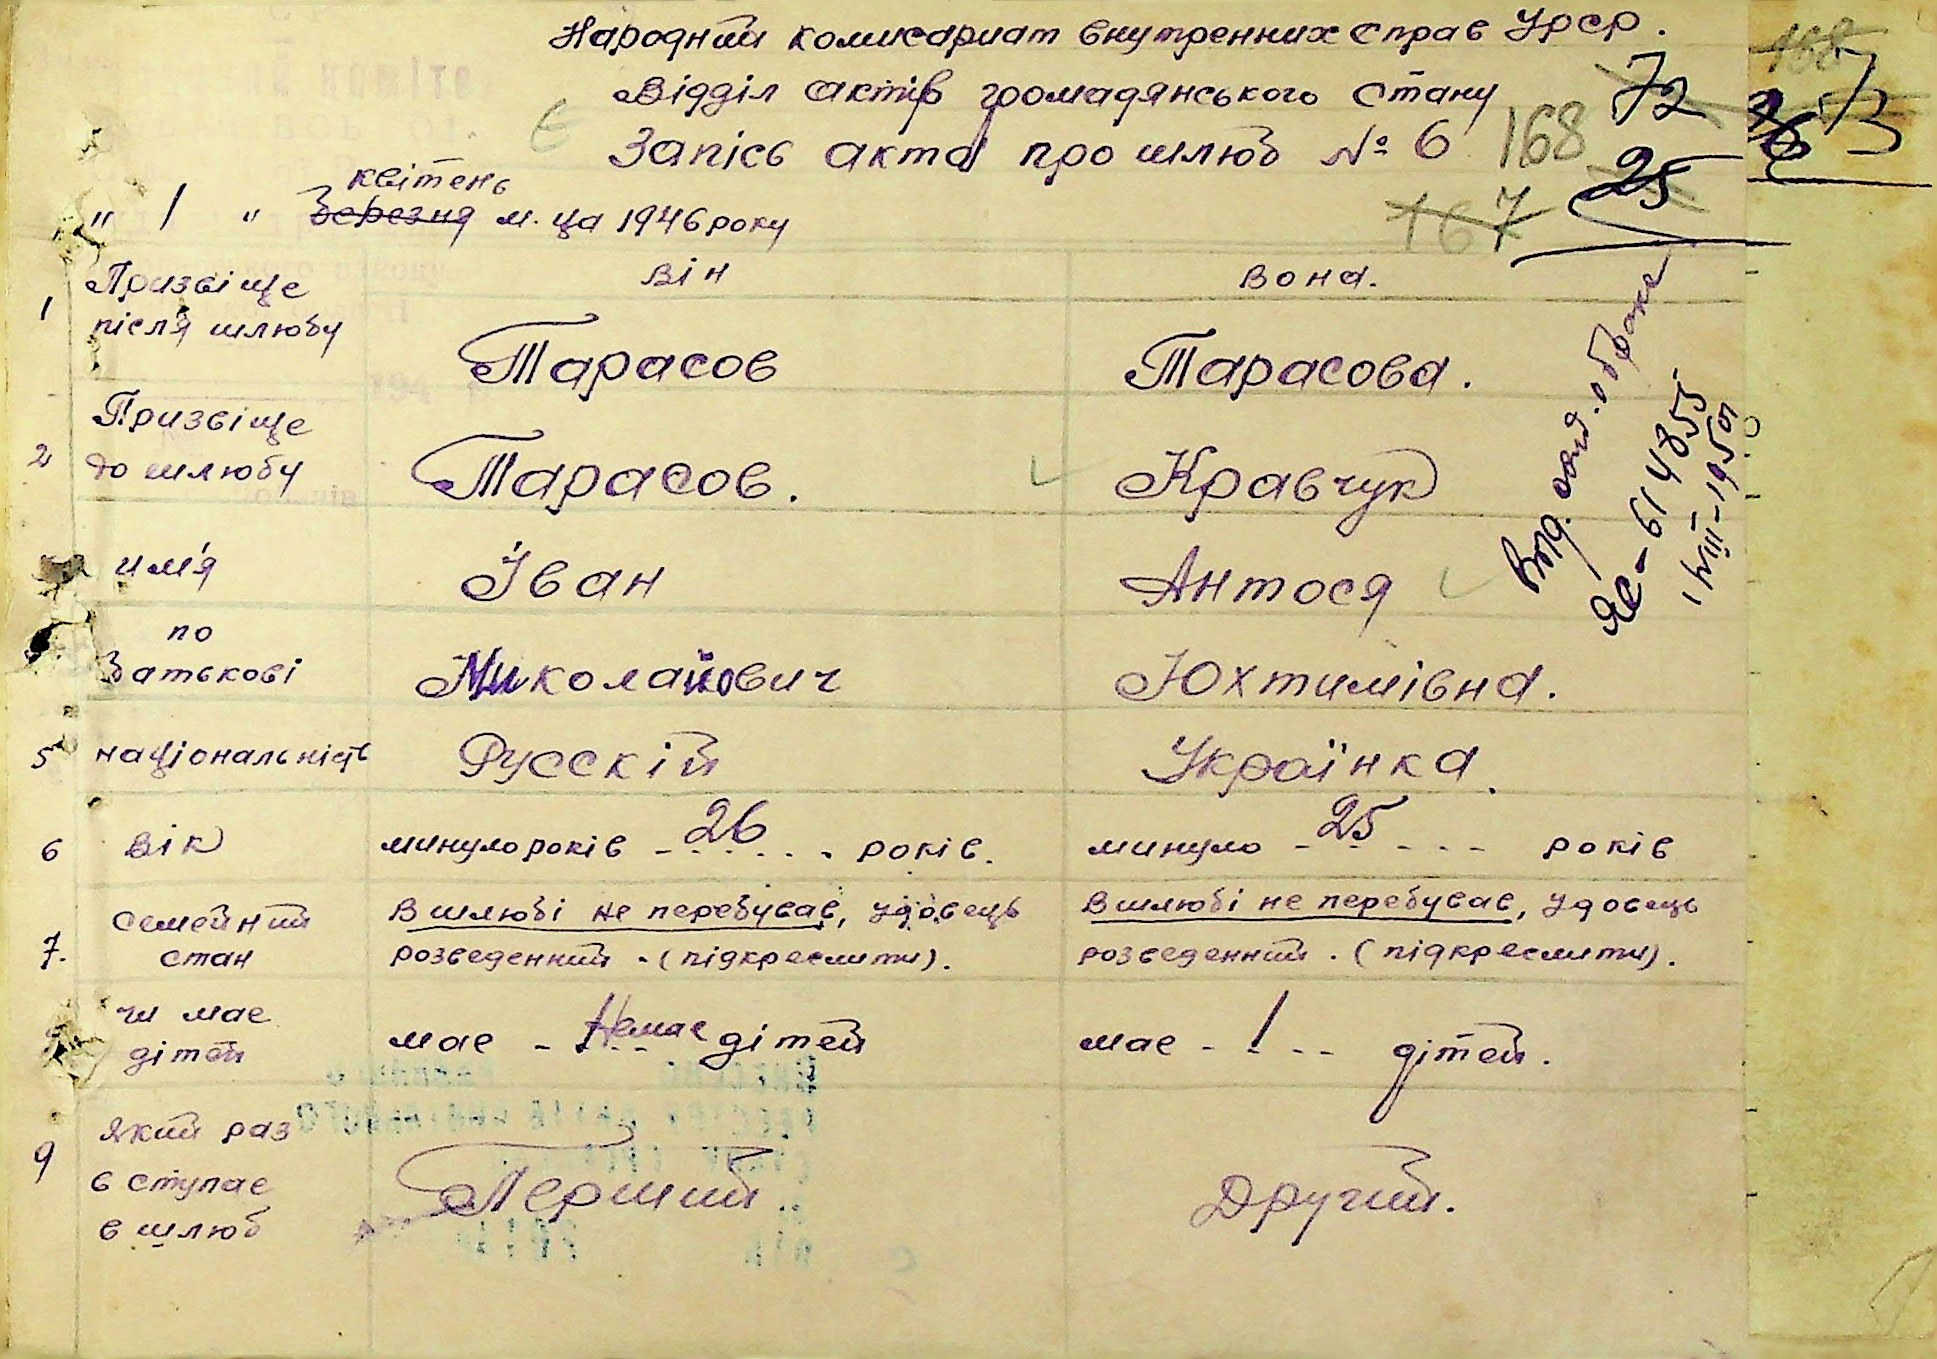 Народний комисариат внутренних справ УРСР.
Відділ актів громадянського стану
Запісь акта про шлюб № 6
168
72
25
167
168
73
26
квітень
" 1 " березня м.ца 1946 року
він
вона.
1 Призвіще після шлюбу
Тарасов
Тарасова.
2 Призвіще до шлюбу
Тарасов.
Кравчук
им'я
Іван
Антося
по батькові
Миколайович
Юхтимівна.
5 національність
Русскій
Українка.
6 вік
минуло років - 26 . . . років.
минуло - 25 - - - років
7. семейний стан
В шлюбі не перебував, удовець
розведенний. (підкреслити).
В шлюбі не перебував, удовець
розведенний. (підкреслити).
чи мае дітей
мае - Немае дітей
мае - 1 - - дітей.
9 який раз в ступае в шлюб
Перший
Другий.
ЯЄ-614855
1/VIII-1950